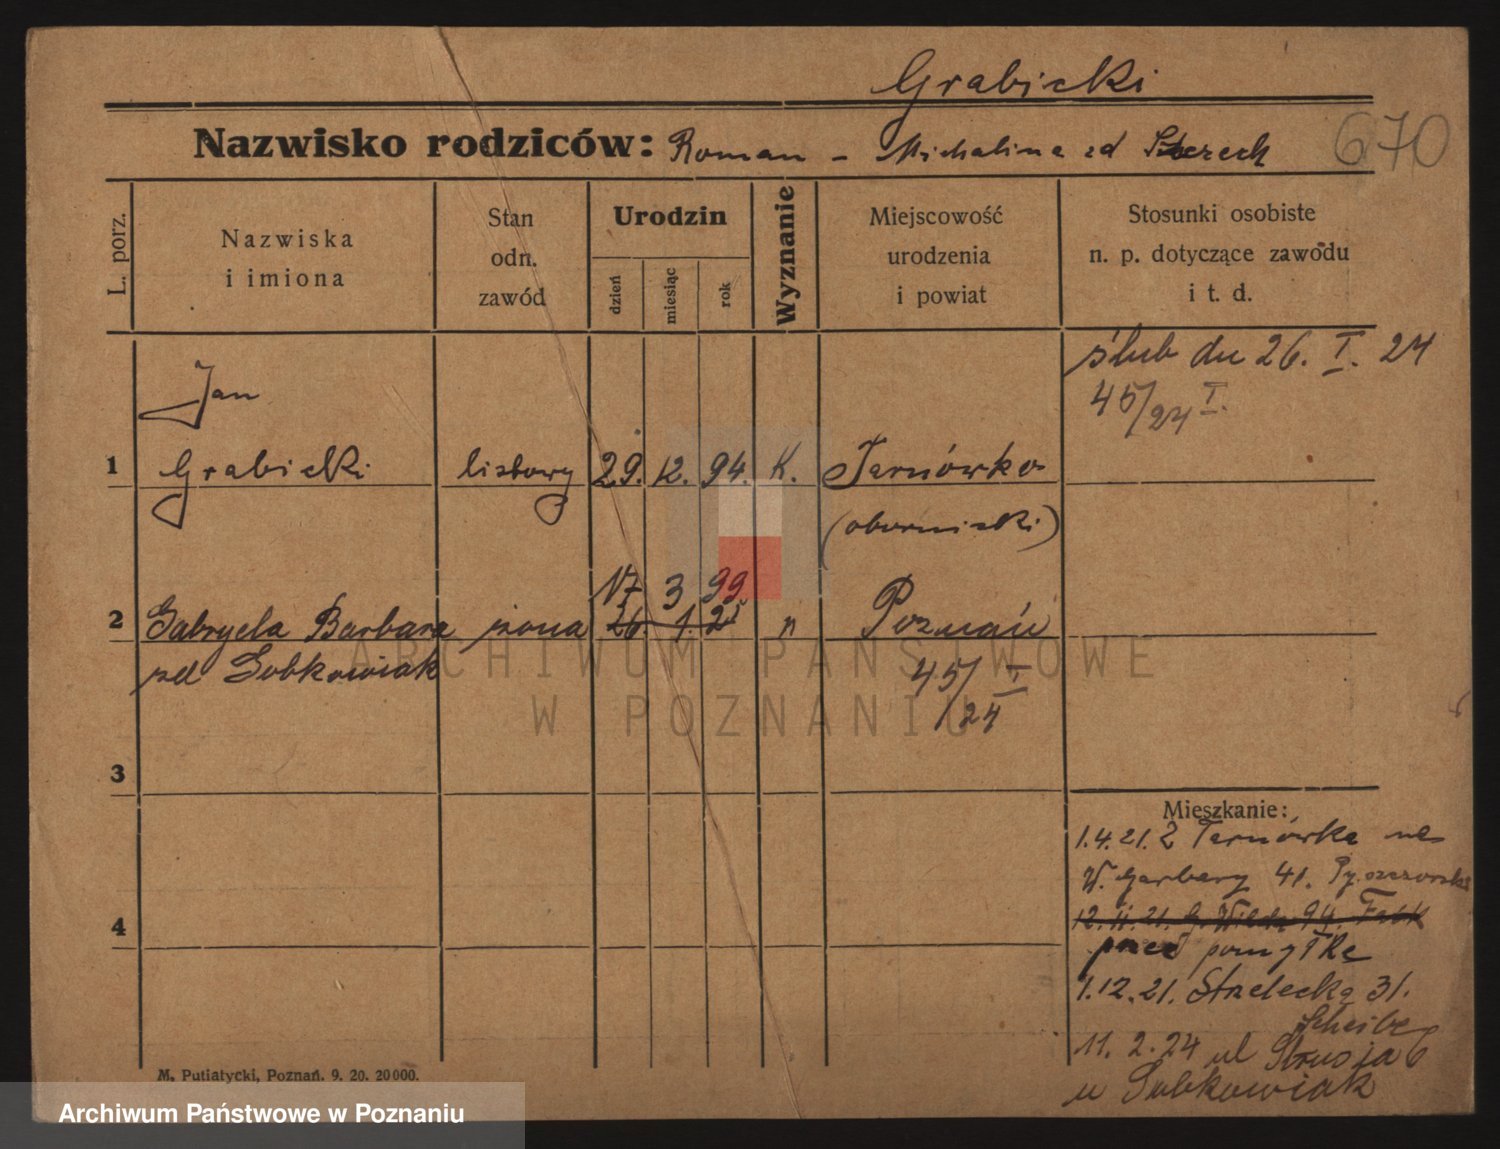 Grabicki
Nazwisko rodziców: Roman - Michalina zd
670
L. porz.
Nazwiska
i imiona
Stan
odn.
zawód
Urodzin
dzień
miesiąc
rok
Wyznanie
Miejscowość
urodzenia
i powiat
Stosunki osobiste
n. p. dotyczące zawodu
i t. d.
ślub dn 26. I. 24
45/24 I.
Jan
1 Grabicki listowy 29. 12. 94. K. Tarnówko
(obornicki)
17 3 99
2 Gabryela Barbara żona 26. 1. 25 n Poznań
zd Sobkowiak
45/24 I
3
Mieszkanie:
1.4.21. Z Tarnówka na
W. Garbary 41.
4
12. 11. 21. G. Wilda 94.
przez pomyłkę
1.12.21. Strzelecka 31.
Scheibe
11. 2. 24 ul Strusia 6
u Sobkowiak
M. Putiatycki, Poznań. 9. 20. 20000.
ARCHIWUM PAŃSTWOWE
W POZNANIU
Archiwum Państwowe w Poznaniu